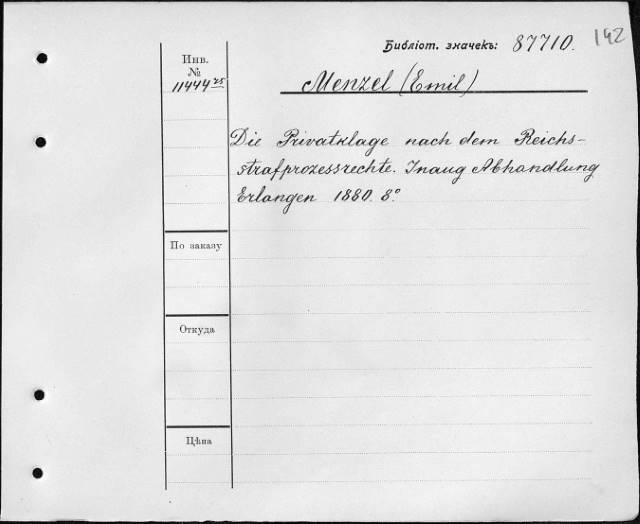 Библіот. значекъ: 87710. 142
Инв.
№
11444 25
Menzel (Emil)
Die Privatklage nach dem Reichs-
strafprozessrechte. Inaug Abhandlung
Erlangen 1880. 8°
По заказу
Откуда
Цѣна